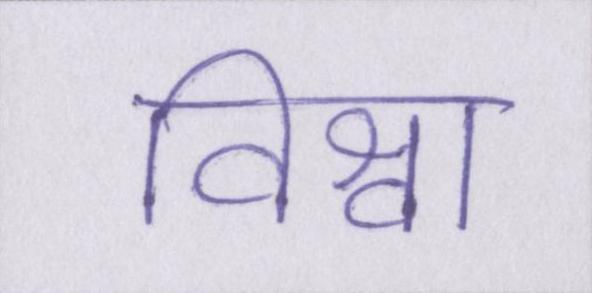 विश्वा